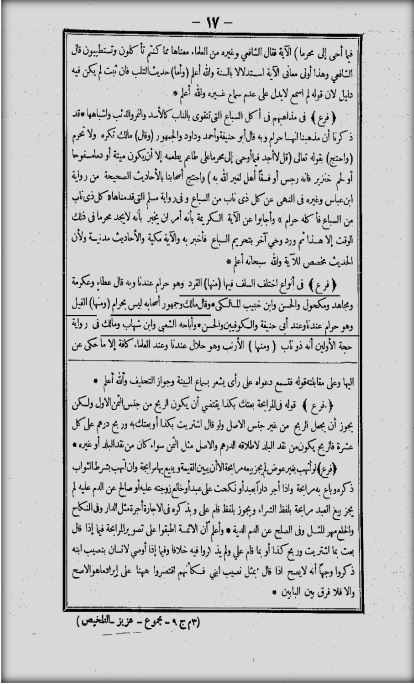 — ١٧ —
فيما أحى إلى محرما ) الآية فقال الشافعي وغيره من العلماء معناها مما كنتم تأكلون وتستطيبون قال
الشافعي وهذا أولى معانى الآية استدلالا بالسنة والله أعلم ( وأما ) حديث التلب فان ثبت لم يكن فيه
دليل لان قوله لم اسمع لايدل على عدم سماع غيره والله أعلم *
( فرع ) فى مذاهبهم فى أكل السباع التى تتقوى بالناب كالأسد والنمر والذئب واشباهها * قد
ذكرنا أن مذهبنا انها حرام وبه قال أبو حنيفة وأحمد وداود والجمهور ( وقال ) مالك تكره ولا تحرم
( واحتج ) بقوله تعالى ( قل لا أجد فيما أوحى إلى محرما على طاعم يطعمه إلا أن يكون ميتة أو دما مسفوحا
أو لحم خنزير فانه رجس أو فسقا أهل لغير الله به ) واحتج أصحابنا بالأحاديث الصحيحة من رواية
ابن عباس وغيره فى النهى عن كل ذى ناب من السباع وفى رواية مسلم التى قدمناها « كل ذى ناب
من السباع فأكله حرام » وأجابوا عن الآية الكريمة بأنه أمر ان يخبر بأنه لا يجد محرما فى ذلك
الوقت إلا هذا ثم ورد وحي آخر بتحريم السباع فأخبر به والآية مكية والأحاديث مدنية ولأن
الحديث مخصص للآية والله سبحانه أعلم *
( فرع ) فى أنواع اختلف السلف فيها ( منها ) القرد وهو حرام عندنا وبه قال عطاء وعكرمة
ومجاهد ومكحول والحسن وابن حبيب المالكى * وقال مالك وجمهور أصحابه ليس بحرام ( ومنها ) الفيل
وهو حرام عندنا وعند أبى حنيفة والكوفيين والحسن * وأباحه الشعبى وابن شهاب ومالك فى رواية
حجة الأولين أنه ذو ناب ( ومنها ) الأرنب وهو حلال عندنا وعند العلماء كافة إلا ما حكى عن
اليها وعلى مقابلته قوله فتسمع دعواه على رأى يشعر بسماع البينة وجواز التحليف والله أعلم *
( فرع ) قوله فى المرابحة بعتك بكذا يقتضي أن يكون الربح من جنس الثمن الاول ولكن
يجوز أن يجعل الربح من غير جنس الاصل ولو قال اشتريت بكذا أو بعتك به وربح درهم على كل
عشرة فالربح يكون من نقد البلد لاطلاقه الدرهم والاصل مثل الثمن سواء كان من نقد البلد أو غيره *
( فرع ) لو أتهب بغير عوض لم يجز بيعه مرابحة الا أن يبين القيمة ويبيع بها مرابحة وان أتهب بشرط الثواب
ذكره وباع به مرابحة واذا أجر دارا بعبد أو نكحت على عبد أو خالع زوجته عليه أو صالح عن الدم عليه لم
يجز بيع العبد مرابحة بلفظ الشراء ويجوز بلفظ قام على ويذكر فى الاجارة أجرة مثل الدار وفى النكاح
والخلع مهر المثل وفى الصلح عن الدم الدية * واعلم أن الائمة اطبقوا على تصوير المرابحة فيما إذا قال
بعت بما اشتريت وربح كذا أو بما قام علي ولم يذكروا فيه خلافا وفيما إذا أوصى لانسان بنصيب ابنه
ذكروا وجها أنه لا يصح اذا قال بمثل نصيب ابنى فكأنهم اقتصروا ههنا على إيراد ما هو الاصح
والا فلا فرق بين البابين *
( م ٣ ج ٩ – مجموع – عزيز – التلخيص )